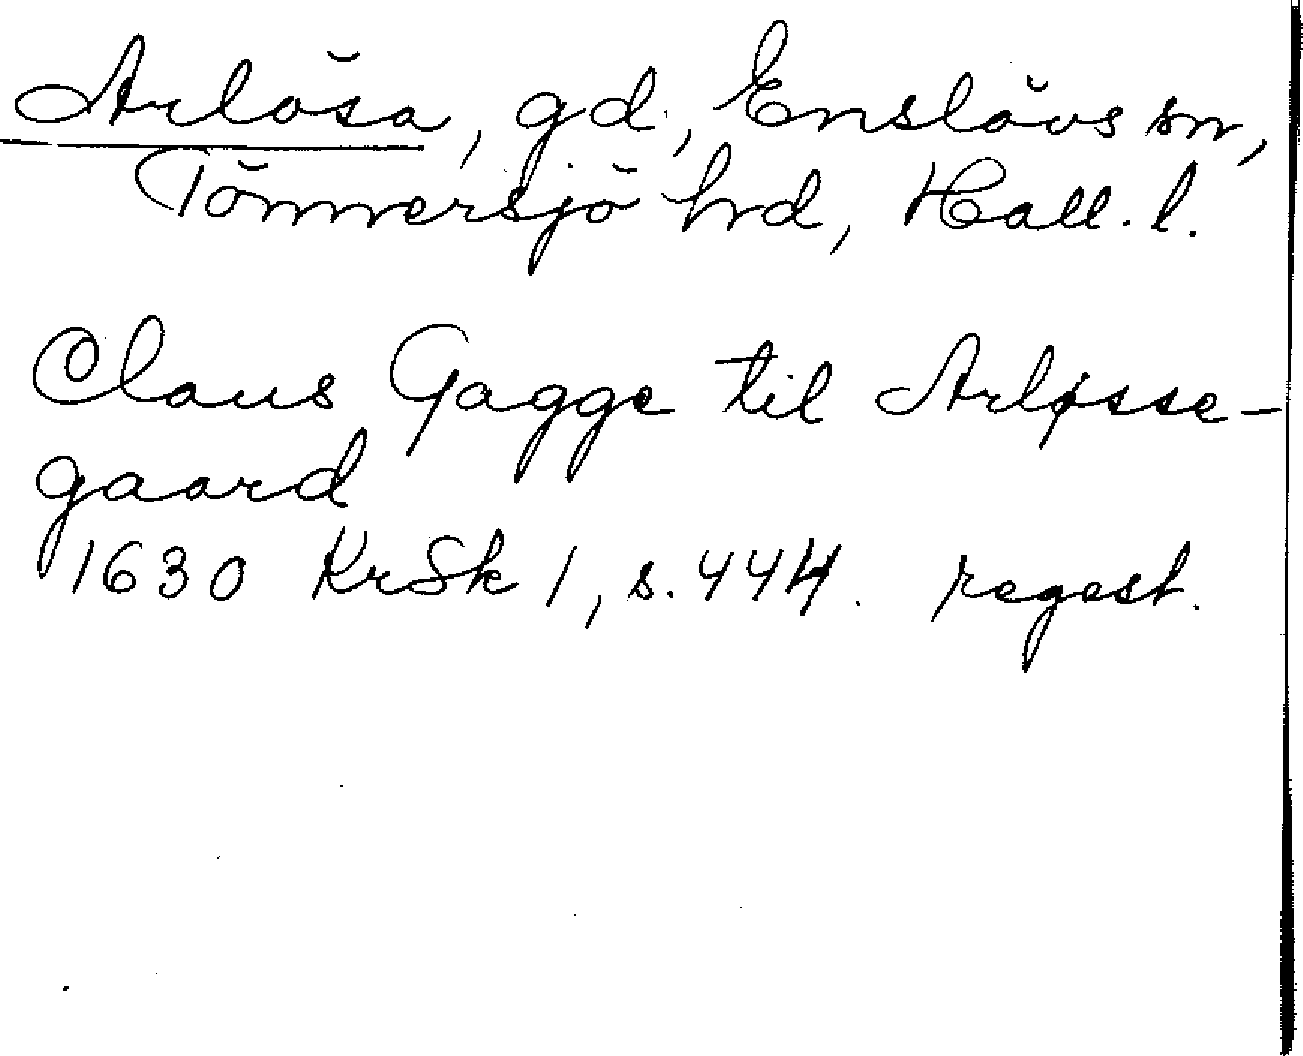 Arlösa, gd., Enslövs sn,
Tönnersjö hrd, Hall. l.
Claus Gagge til Arløsse-
gaard
1630 KrSk 1, s. 444. regest.